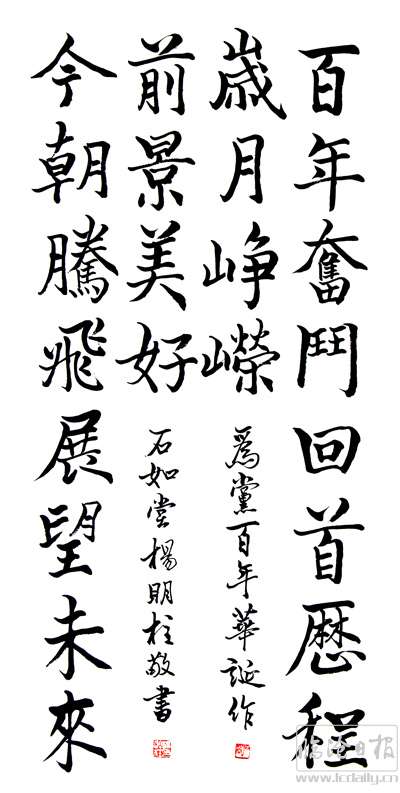 百年奮鬥回首歷程
歲月崢嶸
爲黨百年華誕作
前景美好
石如楊明柱敬書
今朝騰飛展望未來
日报
www.lcdaily.com